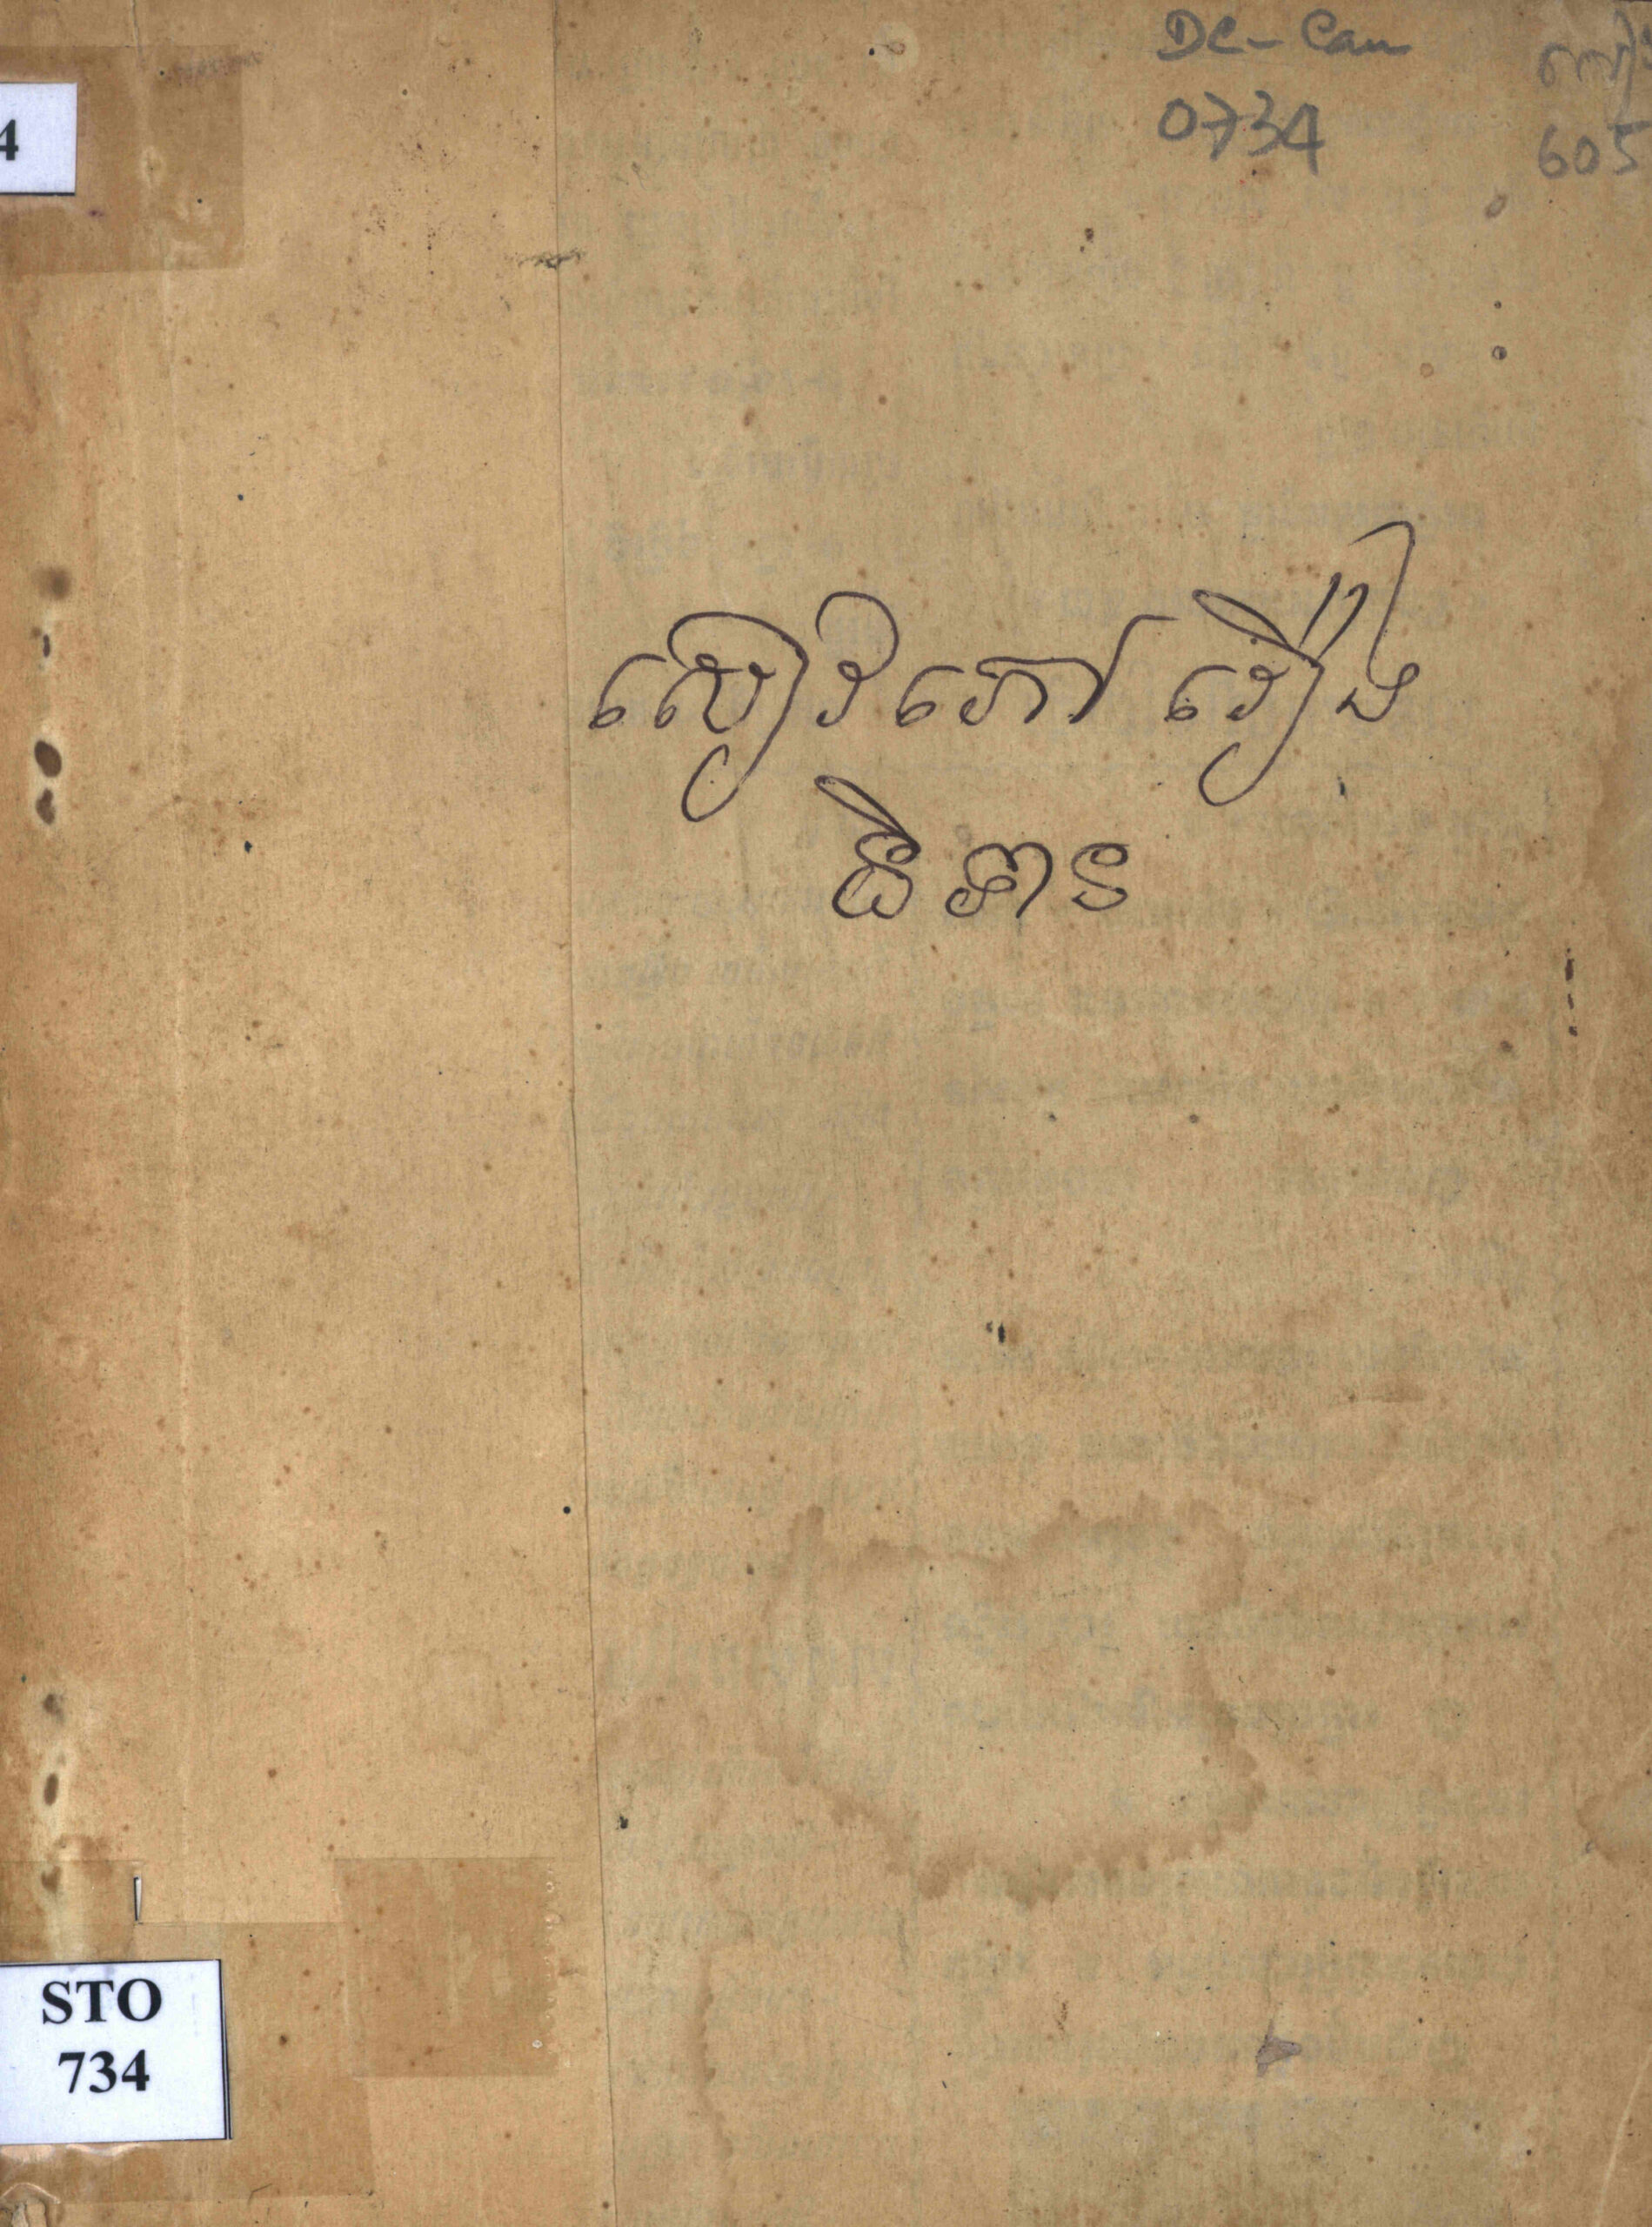 DC-Cam
0734
605
4
សៀវភៅ រឿង
និទាន
STO
734